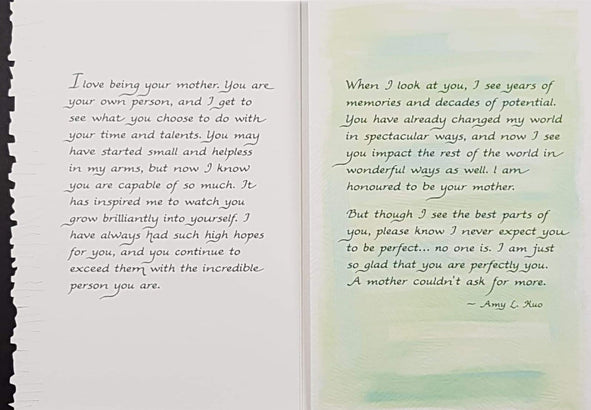 I love being your mother. You are
your own person, and I get to
see what you choose to do with
your time and talents. You may
have started small and helpless
in my arms, but now I know
you are capable of so much. It
has inspired me to watch you
grow brilliantly into yourself. I
have always had such high hopes
for you, and you continue to
exceed them with the incredible
person you are.
When I look at you, I see years of
memories and decades of potential.
You have already changed my world
in spectacular ways, and now I see
you impact the rest of the world in
wonderful ways as well. I am
honoured to be your mother.
But though I see the best parts of
you, please know I never expect you
to be perfect... no one is. I am just
so glad that you are perfectly you.
A mother couldn't ask for more.
~ Amy L. Kuo